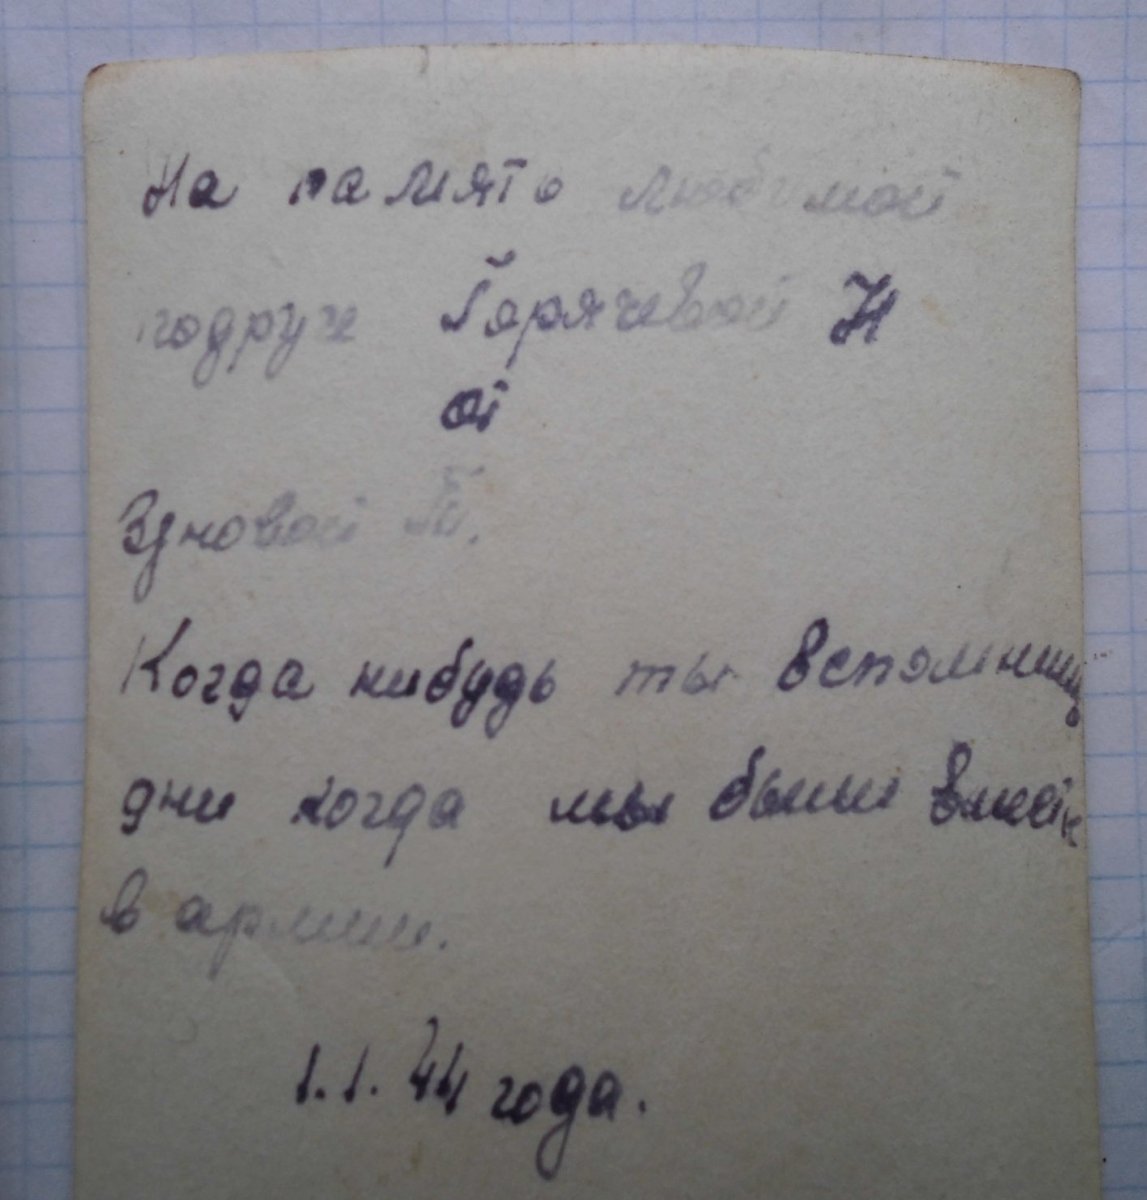 На память любимой
подруге Горячевой Н
от
Зуновой Т.
Когда нибудь ты вспомнишь
дни когда мы были вместе
в армии.
1.1.44 года.